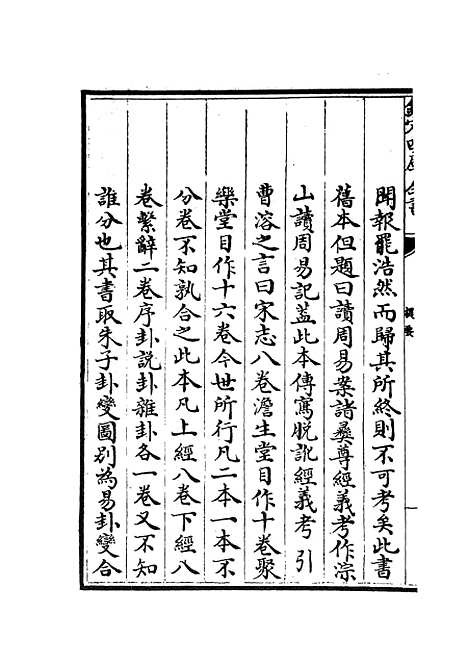 欽定四庫全書
提要
聞報罷浩然而歸其所終則不可考矣此書
舊本但題曰讀周易案諸彝尊經義考作淙
山讀周易記蓋此本傳寫脱訛經義考引
曹溶之言曰宋志八卷澹生堂目作十卷聚
樂堂目作十六卷今世所行凡二本一本不
分卷不知孰合之此本凡上經八卷下經八
卷繫辭二卷序卦説卦雜卦各一卷又不知
誰分也其書取朱子卦變圖别為易卦變合